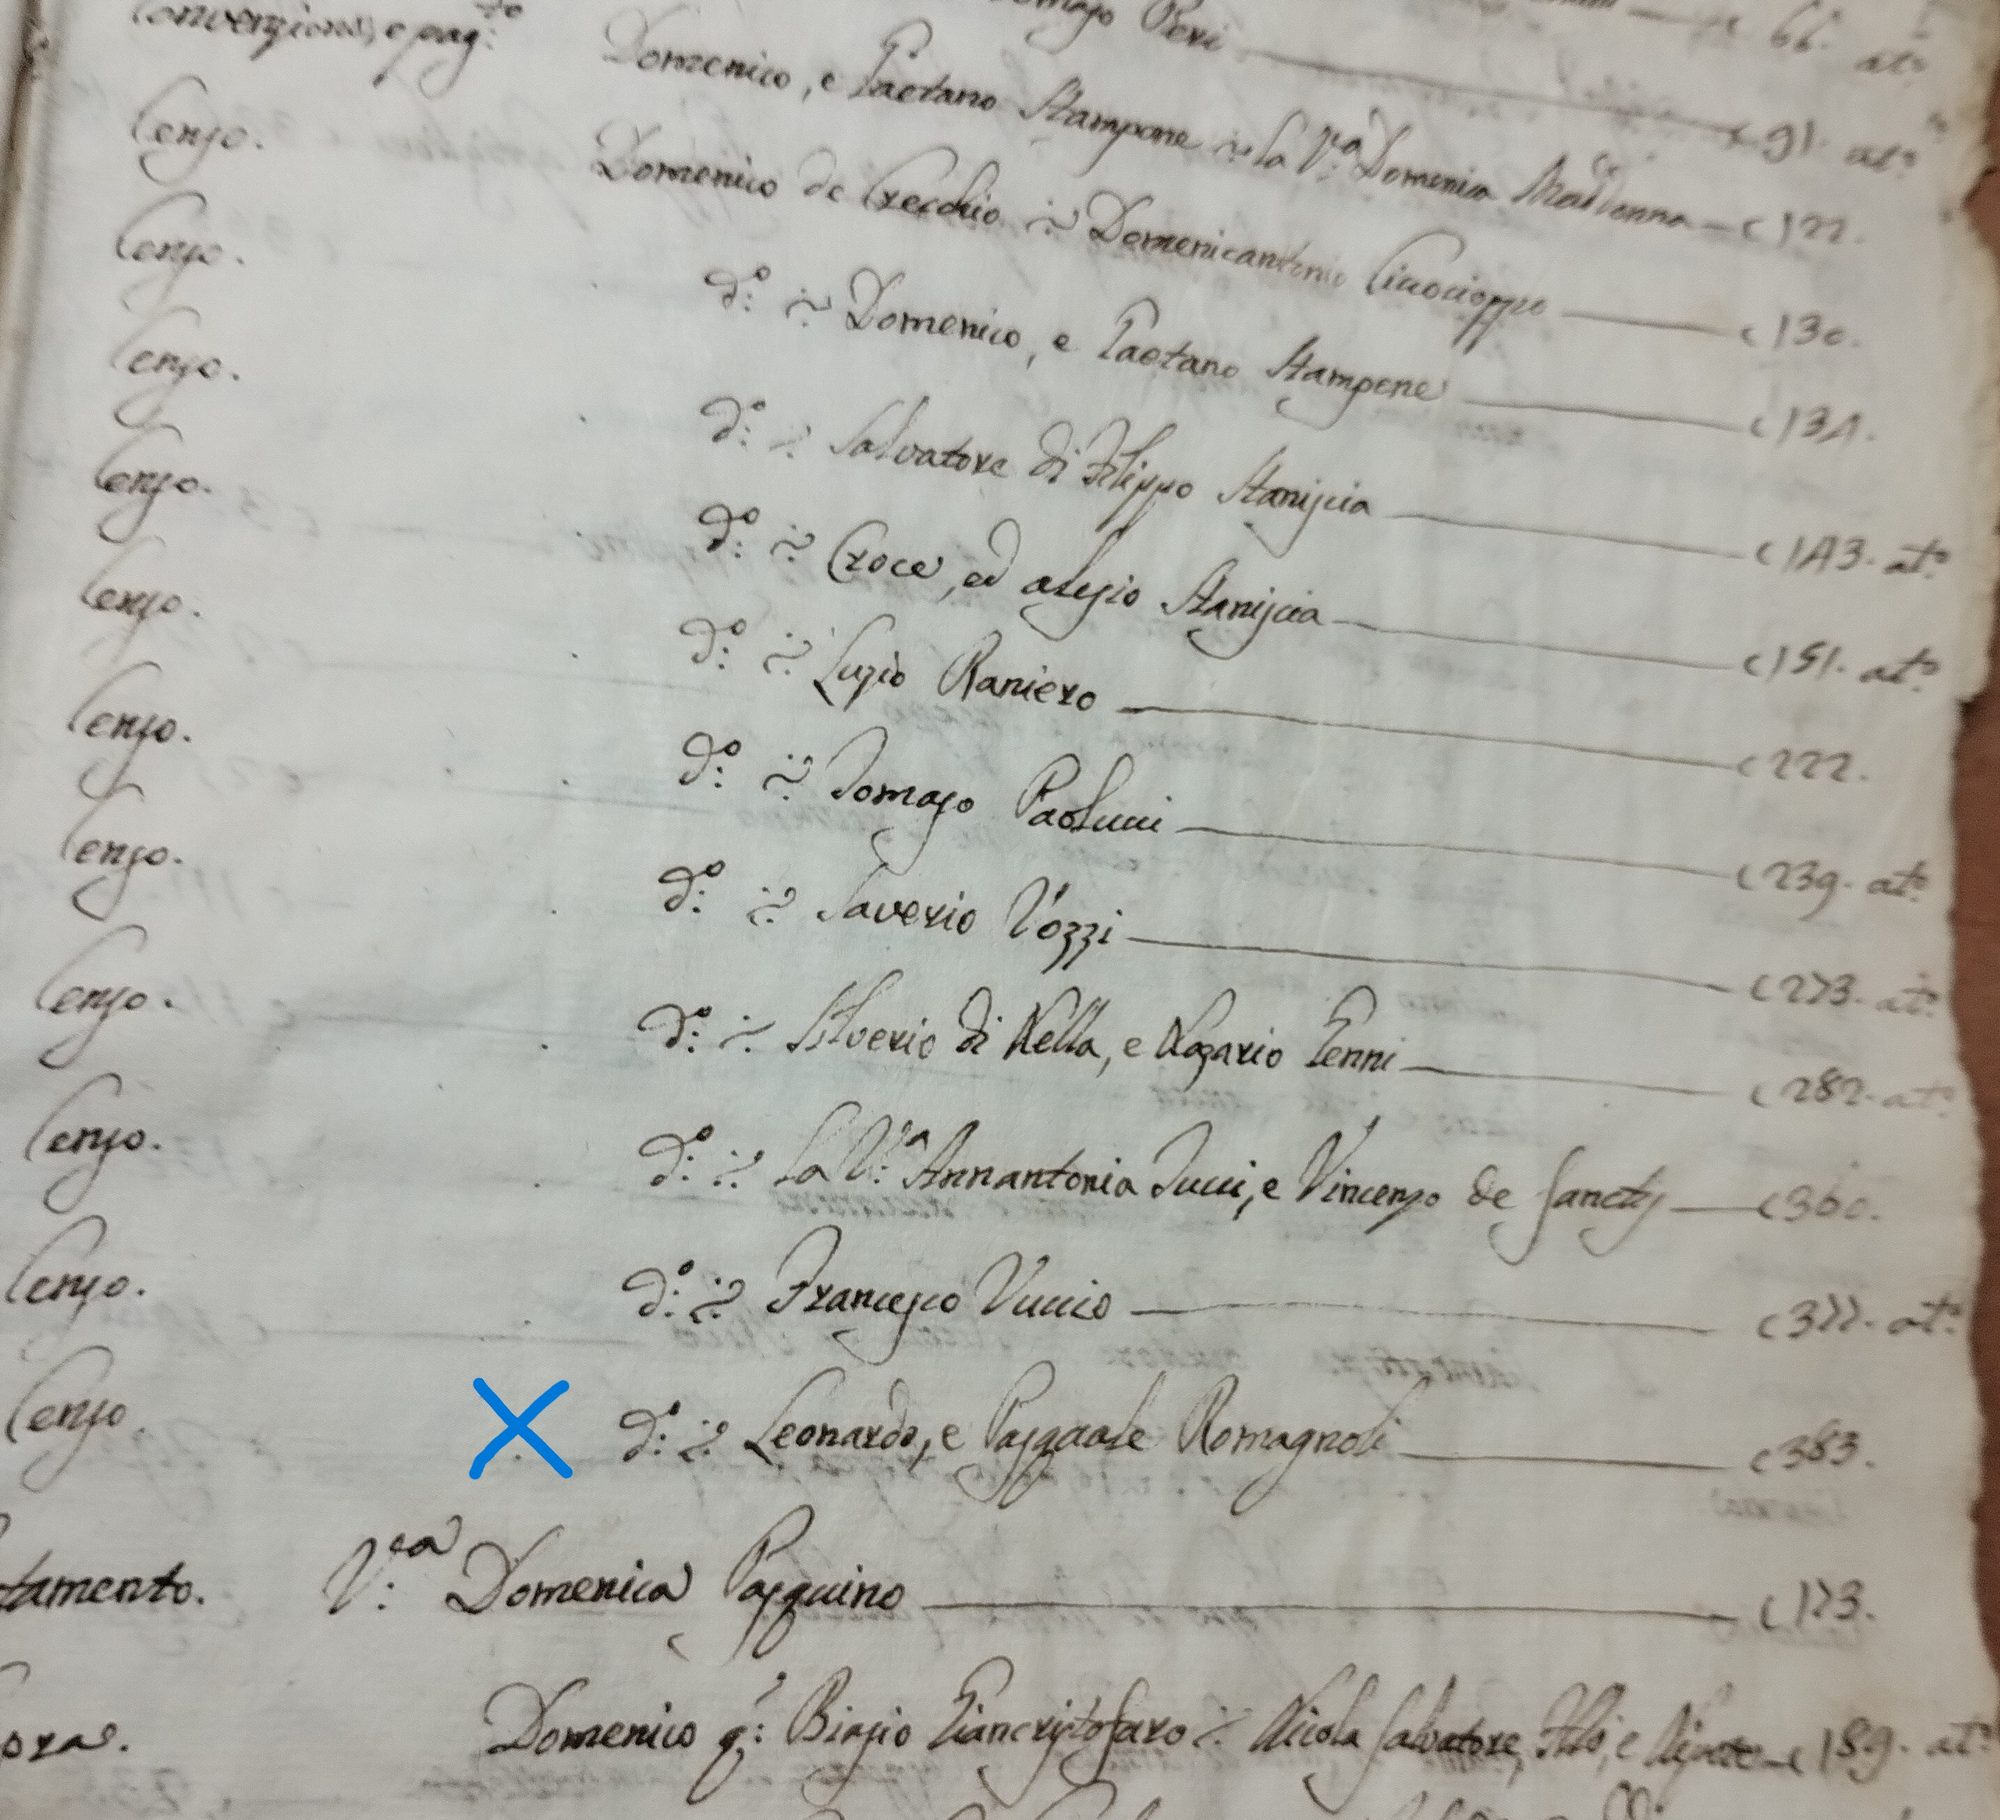 Convenzione, e pag:to
Tomaso Peri c 91. at.o
66. at.o
Censo. Domenico, e Gaetano Stampone :~: la V.a Domenica Madonna c 122.
Censo. Domenico de Crecchio :~: Domenicantonio Ciccocioppo c 130.
Censo. d.o :~: Domenico, e Gaetano Stampone c 134.
Censo. d.o :~: Salvatore di Filippo Staniscia c 143. at.o
Censo. d.o :~: Croce, ed Alesio Staniscia c 151. at.o
Censo. d.o :~: Luzio Raniero c 222.
Censo. d.o :~: Tomaso Paolucci c 239. at.o
Censo. d.o :~: Saverio Vozzi c 273. at.o
Censo. d.o :~: Silverio di Nella, e Nazario Genni c 282. at.o
Censo. d.o :~: la V.a Annantonia Tucci, e Vincenzo de Sanctis c 360.
Censo. d.o :~: Francesco Vuccio c 377. at.o
Censo. d.o :~: Leonardo, e Pasquale Romagnoli c 383.
tamento. V.ea Domenica Pasquino c 173.
oras. Domenico q: Biasio Giancristofaro :~: Nicola Salvatore, Filio, e Nipote c 189. at.o